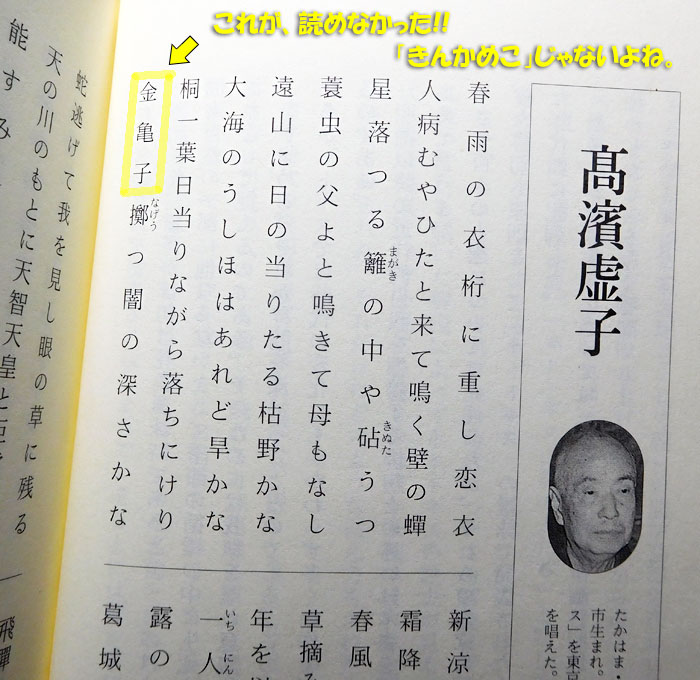 これが、読めなかった!!
「きんかめこ」じゃないよね。
髙濱虚子
たかはま・
市生まれ。
ス」を東京
を唱えた。
春雨の衣桁に重し恋衣
人病むやひたと来て鳴く壁の蟬
星落つる籬の中や砧うつ
まがき
きぬた
蓑虫の父よと鳴きて母もなし
遠山に日の当りたる枯野かな
大海のうしほはあれど旱かな
桐一葉日当りながら落ちにけり
金亀子擲つ闇の深さかな
なげう
新涼
霜降
春風
草摘
年を
一人
いちにん
露の
葛城
蛇逃げて我を見し眼の草に残る
天の川のもとに天智天皇と
能すみ